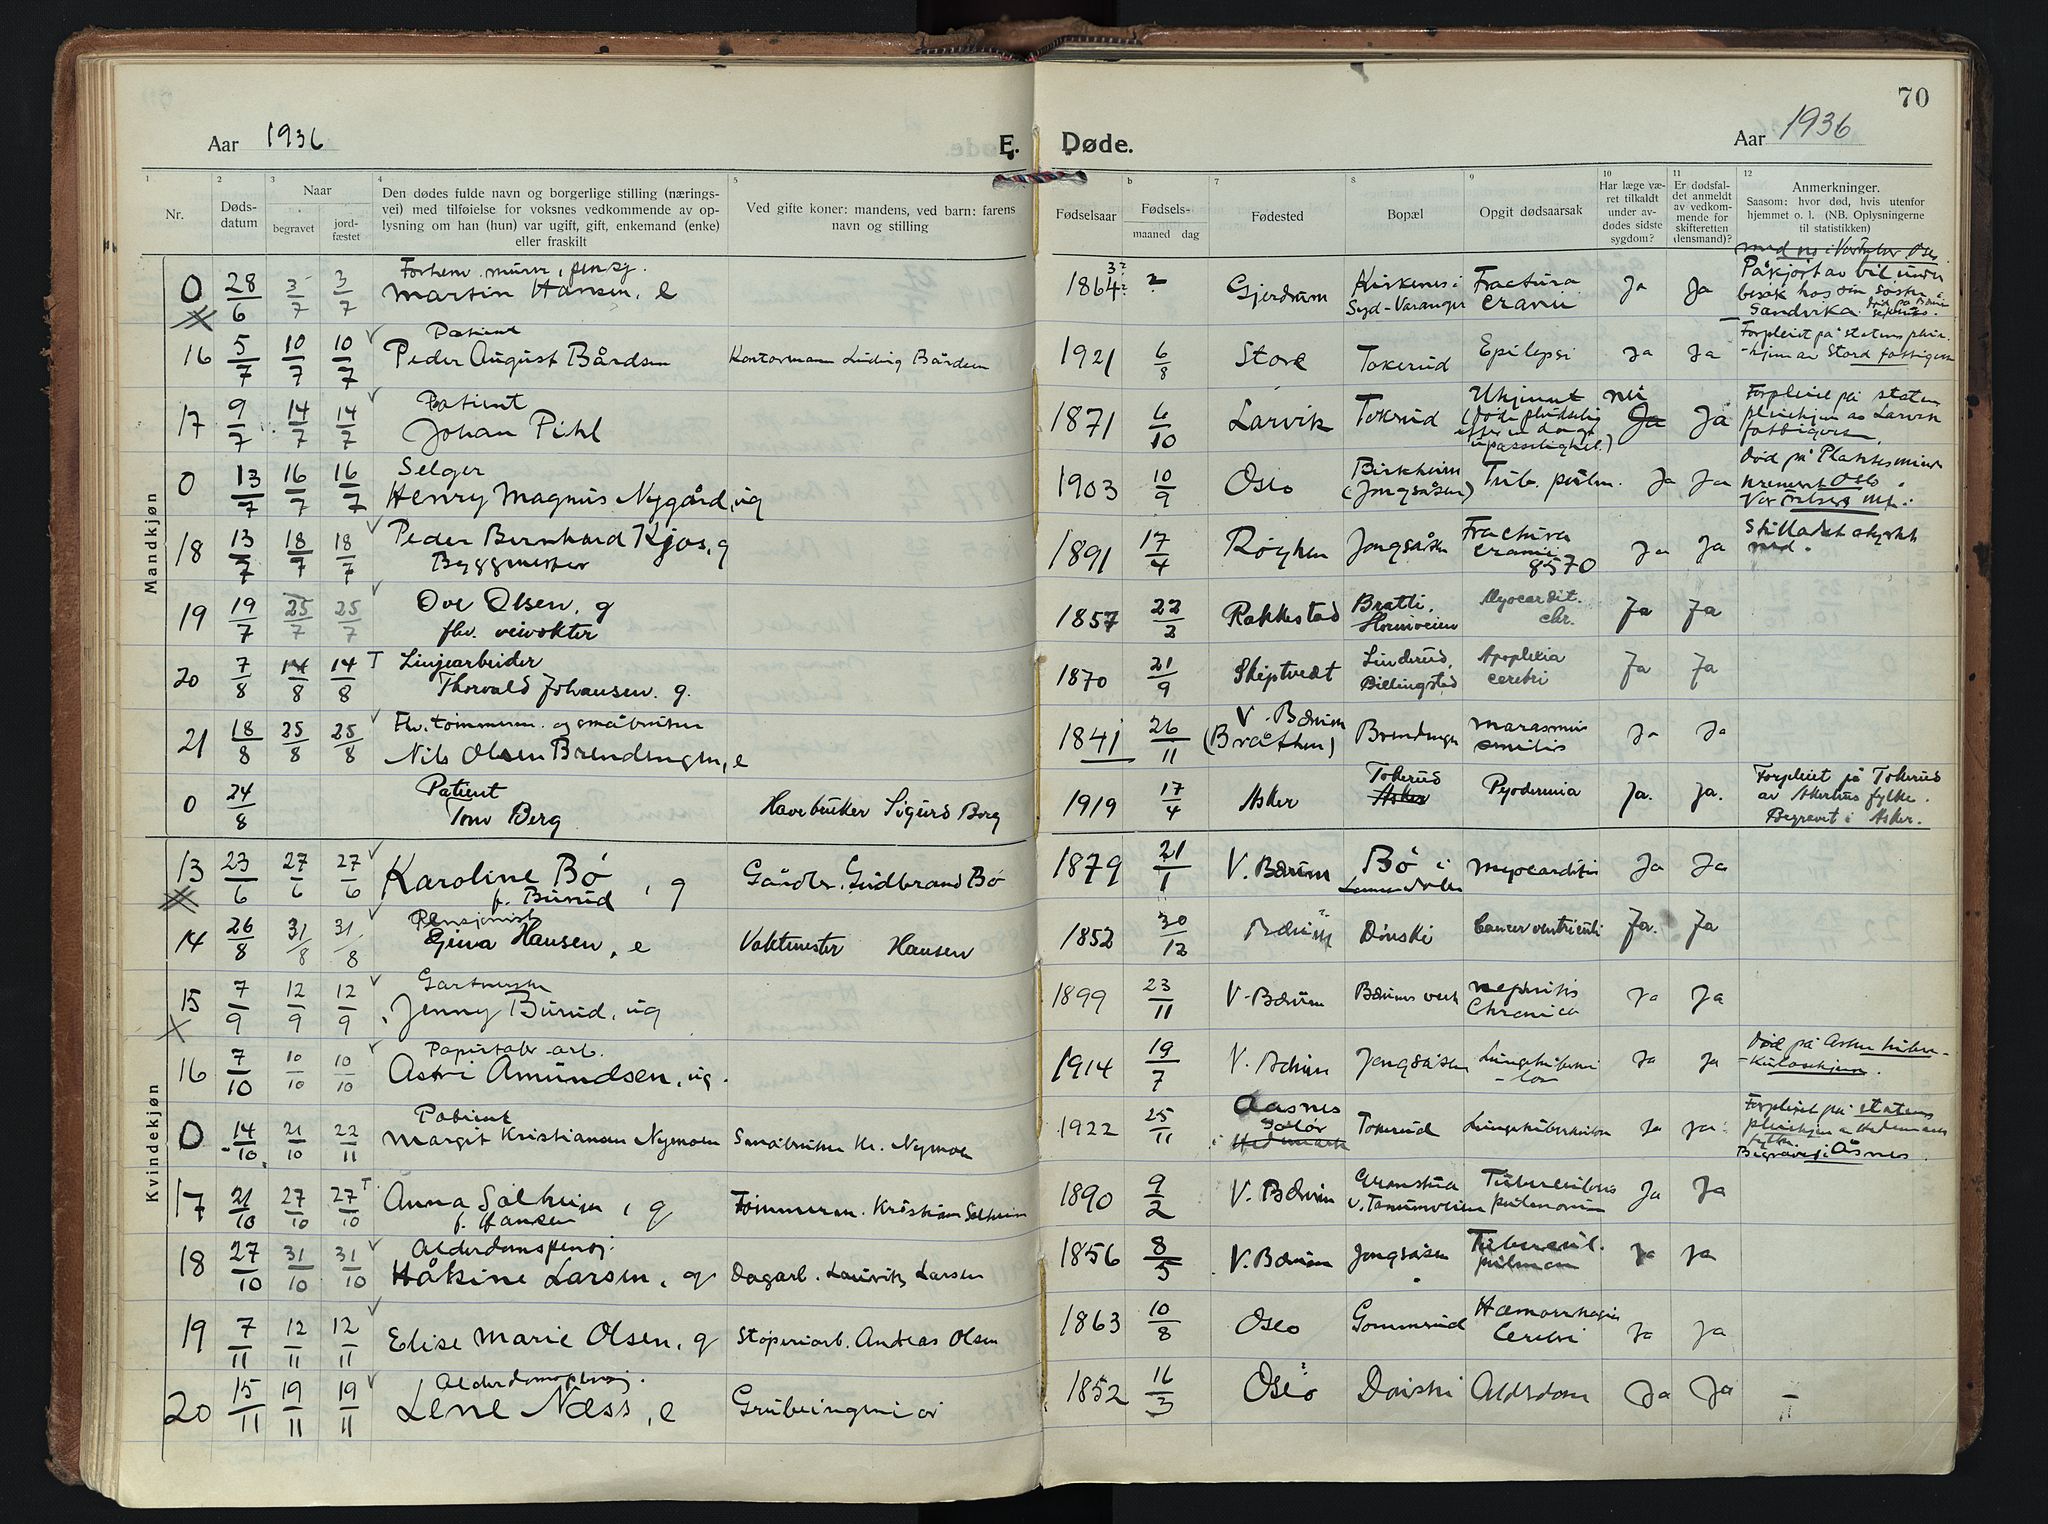 70
Aar 1936
E. Døde.
Aar 1936
1 2 3 4 5 b 7 8 9 10 11 12
Nr.
Døds-
datum
Naar
begravet
jord-
fæstet
Den dødes fulde navn og borgerlige stilling (nærings-
vei) med tilføielse for voksnes vedkommende av op-
lysning om han (hun) var ugift, gift, enkemand (enke)
eller fraskilt
Ved gifte koner: mandens, ved barn: farens
navn og stilling
Fødselsaar
Fødsels-
maaned dag
Fødested
Bopæl
Opgit dødsaarsak
Har læge væ-
ret tilkaldt
under av-
dødes sidste
sygdom?
Er dødsfal-
det anmeldt
av vedkom-
mende for
skifteretten
(lensmand)?
Anmerkninger.
Saasom: hvor død, hvis utenfor
hjemmet o. l. (NB. Oplysningerne
til statistikken)
Mandkjøn
0 28/6 3/7 3/7 Martin Hansen, e 1864 Gjerdrum Kirkenes i Fractura Ja Ja Påkjørt av bil under
Syd-Varanger cranii besøk hos sin søster i
Sandvika.
Patient
16 5/7 10/7 10/7 Peder August Bårdsen Kontormann Ludvig Bårdsen 1921 6/8 Stord Tokerud Epilepsi Ja Ja Forpleiet på statens pleie-
-hjem av Stord fattigvesen
Patient
17 9/7 14/7 14/7 Johan Pihl 1871 6/10 Larvik Tokerud Ukjent nei Ja Ja Forpleiet på statens
(døde pludselig pleiehjem av Larvik
efter en dags fattigvesen.
upasselighet.)
Selger
0 13/7 16/7 16/7 Henry Magnus Nygård, ug 1903 10/9 Oslo Birkheim Tub. pulm. Ja Ja død på
(Jongsåsen) Oslo.
18 13/7 18/7 18/7 Peder Bernhard Kjos, g 1891 17/4 Røyken Jongsåsen Fractura Ja Ja Stilladset styrtet
Byggmester cranii ned.
8570
19 19/7 25/7 25/7 Ove Olsen, g 1857 22/2 Rakkestad Bratli. Myocardit. Ja Ja
fhv. veivokter chr.
Linjearbeider
20 7/8 14/8 14/8 T Thorvald Johansen. g. 1870 21/9 Skiptvedt Linderud, Apoplexia Ja Ja
Billingstad cerebri
Fhv. tømmerm. og småbruker
21 18/8 25/8 25/8 Nils Olsen Brendengen, e 1841 26/11 V. Bærum Brendengen marasmus Ja Ja
(Bråthen) senilis
Patient
0 24/8 Tom Berg Havebruker Sigurd Berg 1919 17/4 Asker Tokerud Asker Pyodermia Ja. Ja. Forpleiet på Tokerud
av Akershus fylke.
Begravet i Asker.
Kvindekjøn
13 23/6 27/6 27/6 Karoline Bø, g Gårdbr. Gudbrand Bø 1879 21/1 V. Bærum Bø i myocarditis Ja Ja
f. Burud Lommedalen
Pensjonist
14 26/8 31/8 31/8 Gina Hansen, e Vaktmester Hansen 1852 30/12 Bærum Dønski Cancer ventriculi Ja. Ja
15 7/9 12/9 12/9 Jenny Burud, ug 1899 23/11 V. Bærum Bærums verk nephritis Ja Ja
Chronica
Papirfabr. arb.
16 7/10 10/10 10/10 Astri Amundsen, ug. 1914 19/7 V. Bærum Jongsåsen Lungetuberku- Ja Ja død på Asker tuber-
-lose -kulosehjem.
Patient
0 14/10 21/10 22/11 Margit Kristiansen Nymoen Småbruker Kr. Nymoen 1922 25/11 Aasnes Tokerud Lungetuberkulose Ja Ja Forpleiet på statens
Solør pleiehjem av Hedemarks
i Hedemark fylke.
Begravet i Åsnes.
17 21/10 27/10 27/10 T Anna Solheim, g Tømmerm. Kristian Solheim 1890 9/2 V. Bærum Tuberculosis Ja Ja
f. Hansen v. Tanumveien pulmonum
Alderdomspensj.
18 27/10 31/10 31/10 Håkine Larsen, g Dagarb. Lauritz Larsen 1856 8/5 V. Bærum Jongsåsen Tubercul. Ja Ja
pulmon
19 7/11 12/11 12/11 Elise Marie Olsen, g Støperiarb. Andreas Olsen 1863 10/8 Oslo Gommerud Hæmorrhagia Ja Ja
Cerebri
Alderdomspensj.
20 15/11 19/11 19/11 Lene Næss, e Grubeingeniør 1852 16/3 Oslo Dønski Alderdom Ja Ja